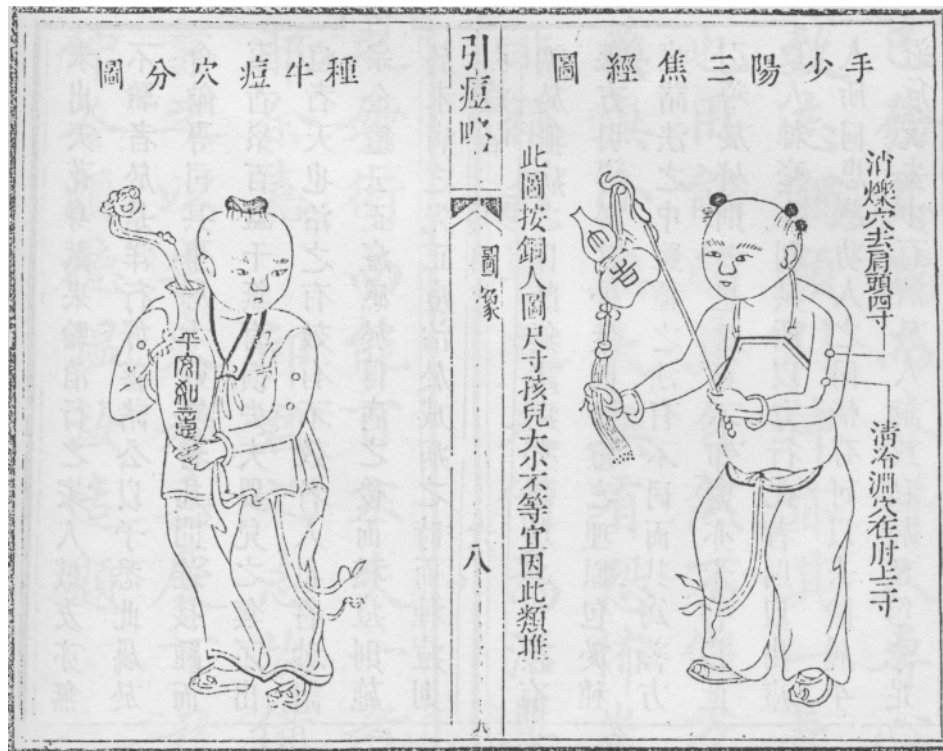 手少陽三焦經圖
消爍穴去肩頭四寸
清冷淵穴在肘上二寸
此圖按銅人圖尺寸孩兒大小不等宜因此類推
引痘略
圖像
八
種牛痘穴分圖
平安